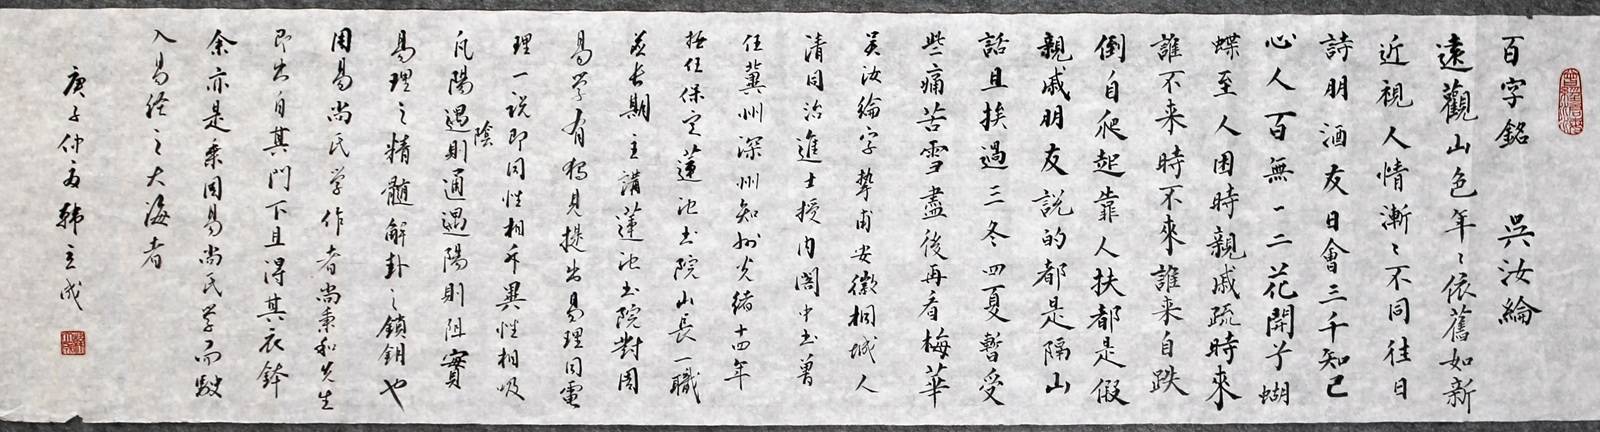 百字銘 吳汝綸
遠觀山色年々依舊如新
近視人情漸々不同往日
詩朋酒友日會三千知己
心人百無一二花開予蝴
蝶至人困時親戚疏時來
誰不来時不來誰来自跌
倒自爬起靠人扶都是假
親戚朋友説的都是隔山
話且挨過三冬四夏暫受
些痛苦雪盡後再看梅華
吴汝綸字摯甫安徽桐城人
清同治進士授内閣中书曾
任冀州深州知州光绪十四年
接任保定蓮池书院山長一職
並長期主講蓮池书院對周
易学有独見提出易理同電
理一说即同性相斥異性相吸
凡陽遇陰則通遇陽則阻實
易理之精髓解卦之鎖鈅也
周易尚氏学作者尚秉和先生
即出自其門下且得其衣鉢
余亦是乘周易尚氏学而駛
入易经之大海者
庚子仲夏韩立成